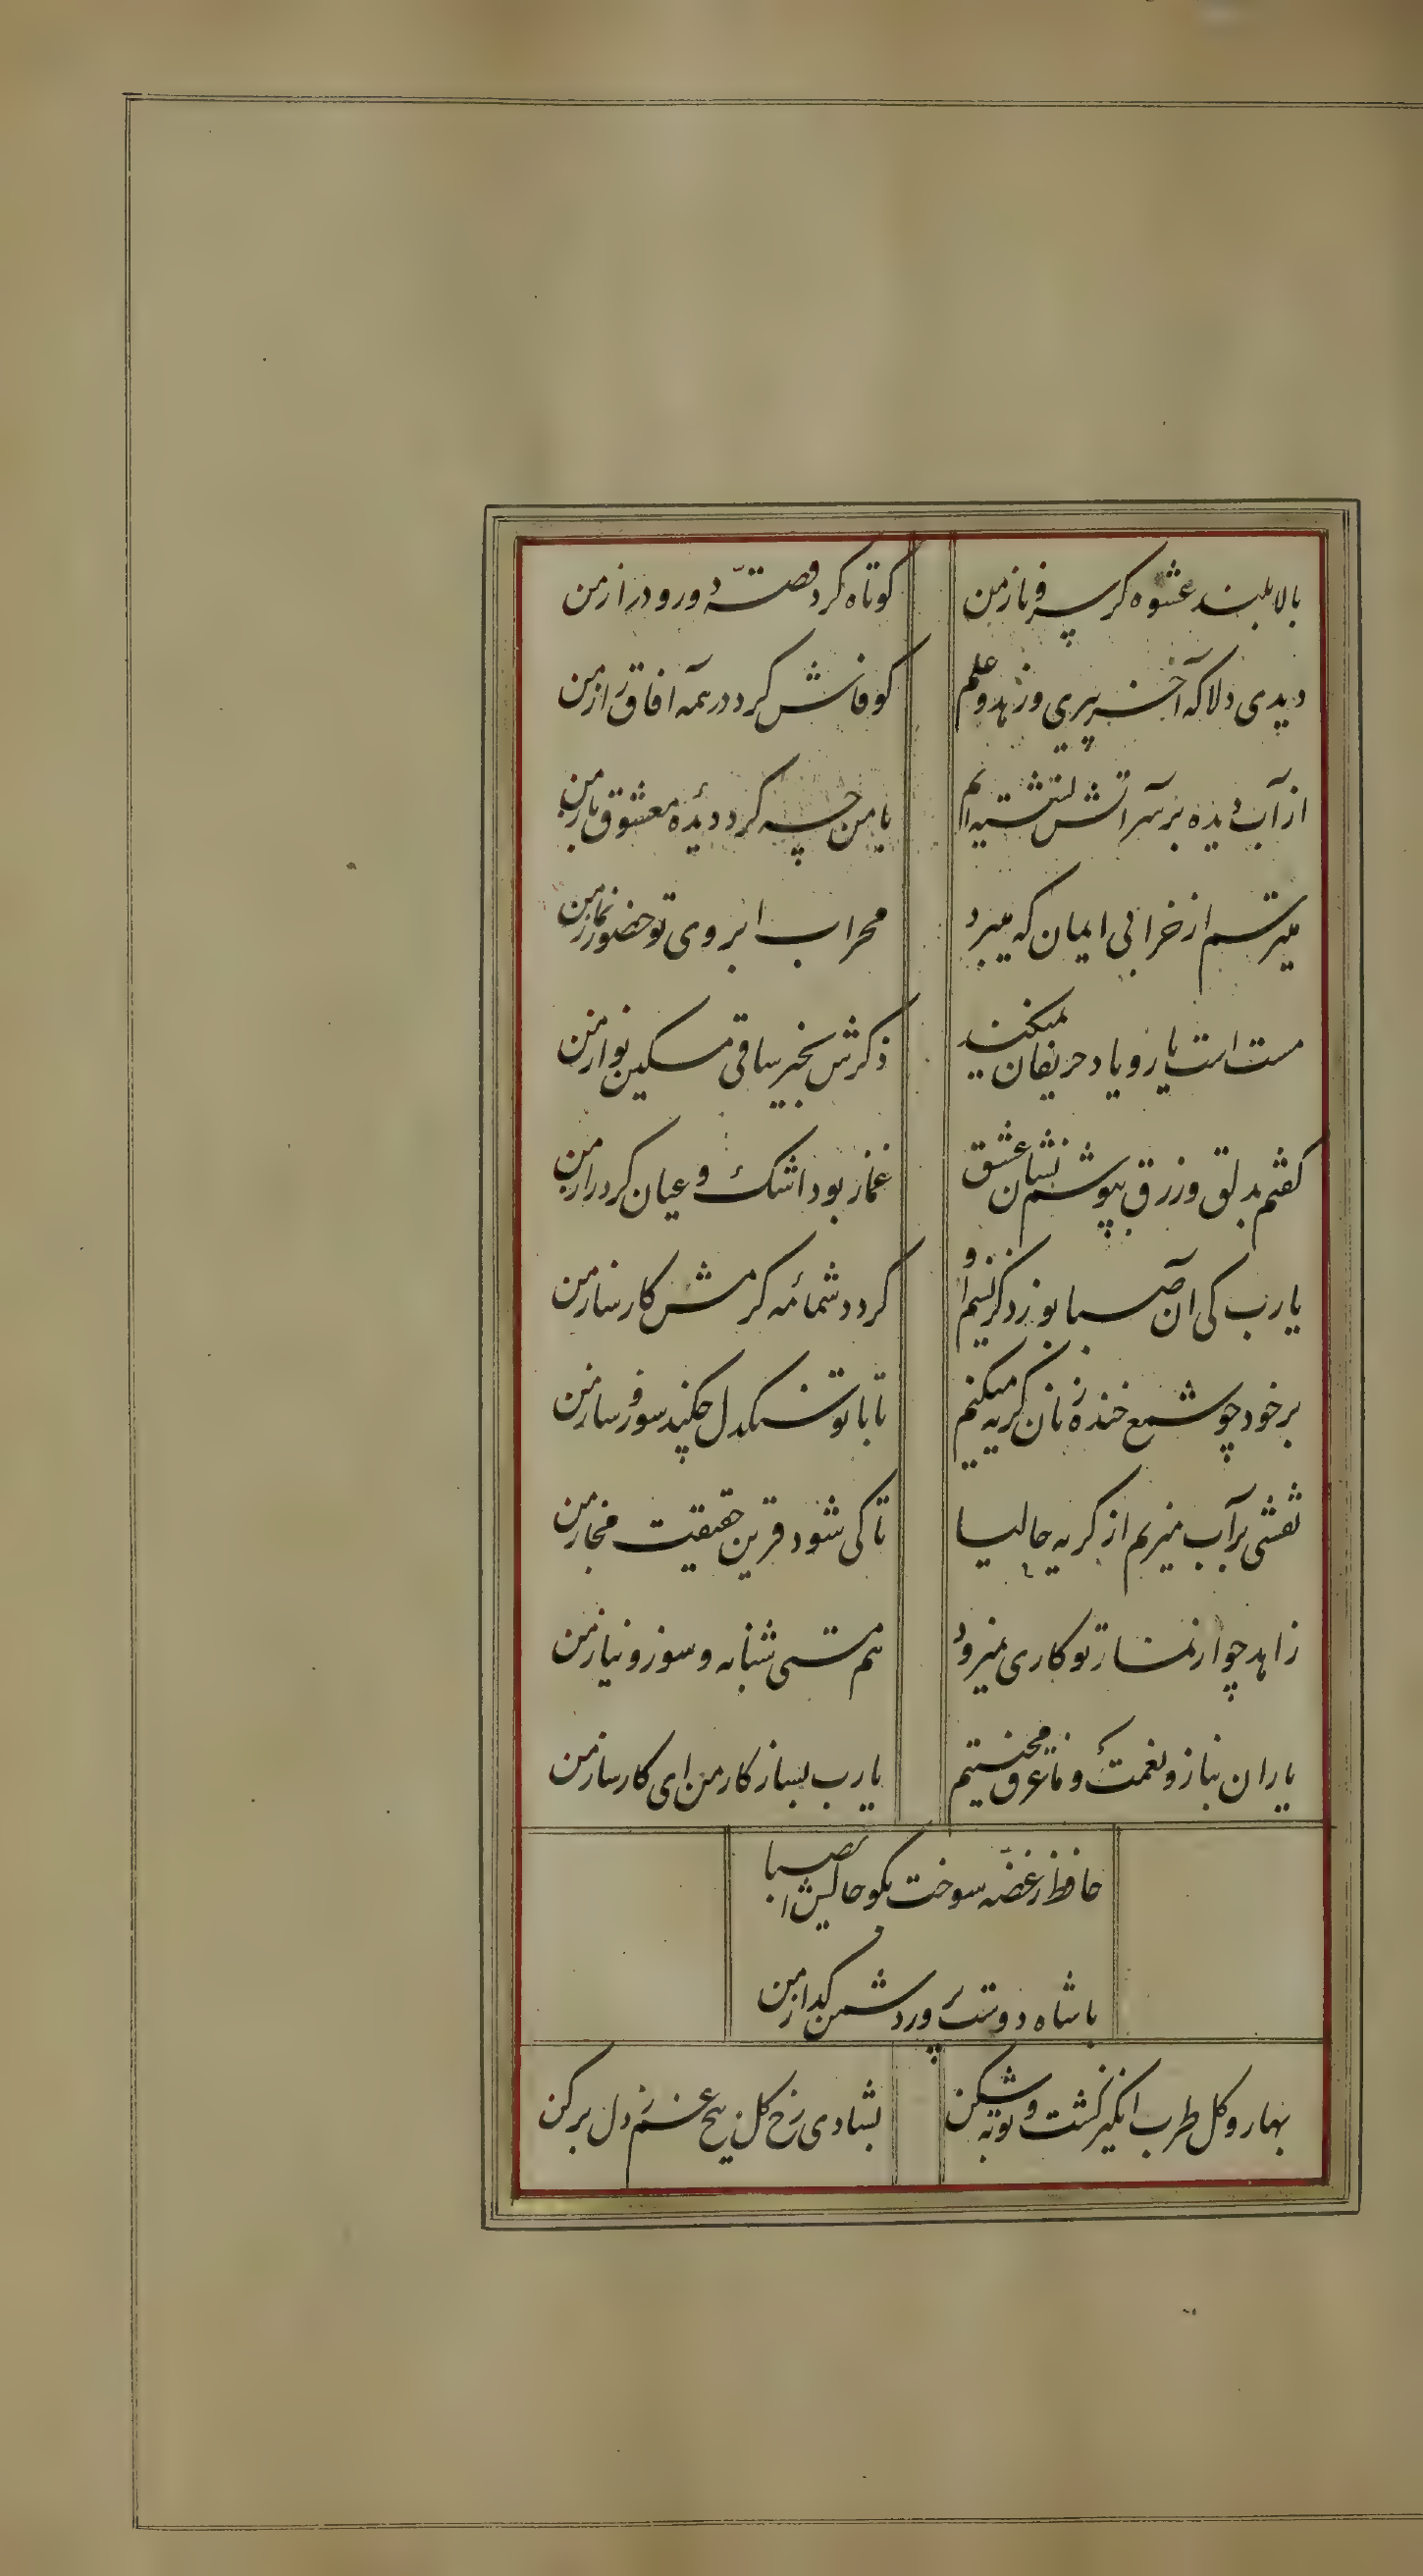 بالا بلند عشوه گر سرو ناز من
کوتاه کرد قصهٔ دور و دراز من
دیدی دلا که آخر پیری و زهد و علم
کو فاش کرد در همه آفاق راز من
از آب دیده بر سر آتش نشسته ایم
با من چه کرد دیدهٔ معشوق باز من
میترسم از خرابی ایمان که میبرد
محراب ابروی تو حضور نماز من
مست است یار و یاد حریفان نمیکند
ذکرش بخیر ساقی مسکین نواز من
گفتم بدلق و زرق بپوشم نشان عشق
غماز بود اشک و عیان کرد راز من
یارب کی آن صبا بوزد کز نسیم او
گردد شمامه کرمش کارساز من
بر خود چو شمع خنده زنان گریه میکنم
تا با تو سنگدل چکند سوز و ساز من
نقشی بر آب میزنم از گریه حالیا
تا کی شود قرین حقیقت مجاز من
زاهد چو از نماز تو کاری نمیرود
هم مستی شبانه و سوز و نیاز من
یاران بناز و نعمت و ما غرق محنتیم
یارب بساز کار من ای کارساز من
حافظ ز غصه سوخت بگو حالش ای صبا
با شاه دوست پرور دشمن گداز من
بهار و گل طرب انگیز گشت و توبه شکن
بشادی رخ گل بیخ غم ز دل برکن